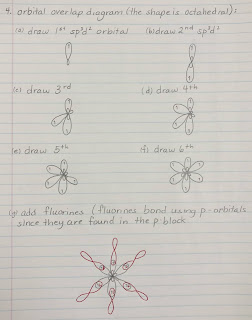 4. orbital overlap diagram (the shape is octahedral):
(a) draw 1st sp³d² orbital (b) draw 2nd sp³d²
(c) draw 3rd (d) draw 4th
(e) draw 5th (f) draw 6th
(g) add fluorines (fluorines bond using p-orbitals
since they are found in the p block